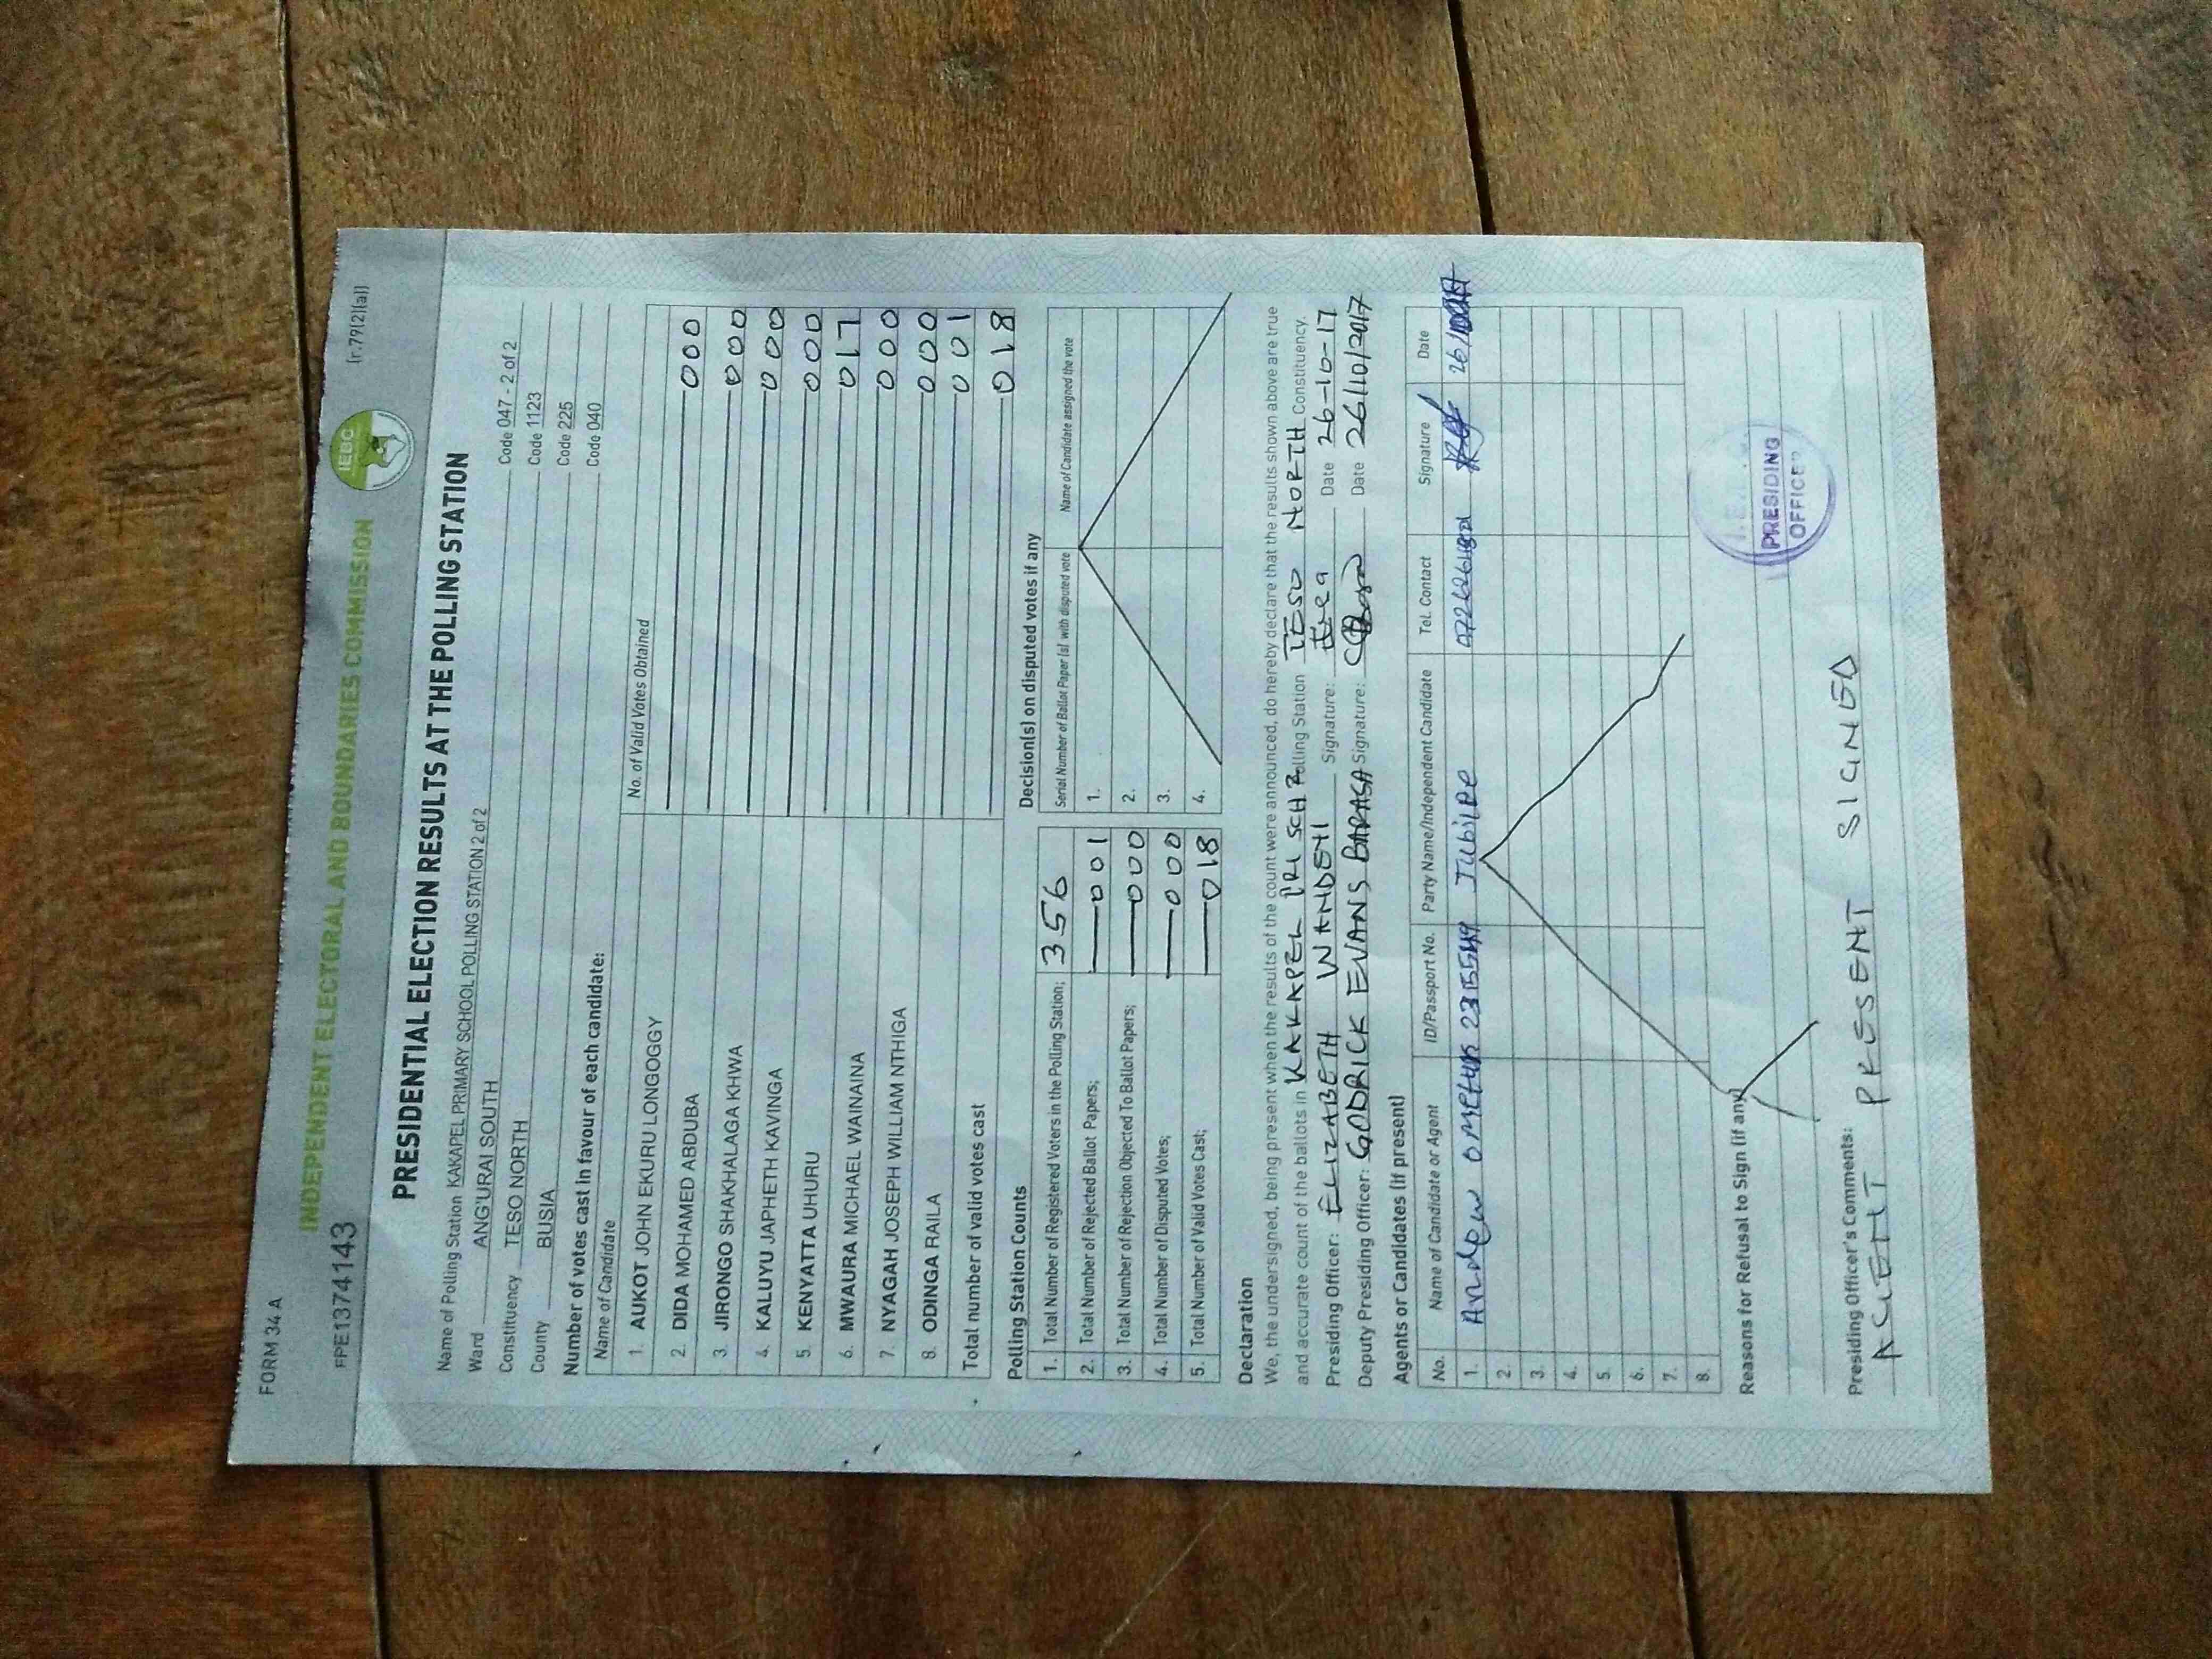 FORM 34 A
(r.79(2)(a))
INDEPENDENT ELECTORAL AND BOUNDARIES COMMISSION
IEBC
FPE1374143
PRESIDENTIAL ELECTION RESULTS AT THE POLLING STATION
Name of Polling Station KAKAPEL PRIMARY SCHOOL POLLING STATION 2 of 2 Code 047 - 2 of 2
Ward ANG'URAI SOUTH Code 1123
Constituency TESO NORTH Code 225
County BUSIA Code 040
Number of votes cast in favour of each candidate:
Name of Candidate No. of Valid Votes Obtained
1. AUKOT JOHN EKURU LONGOGGY 000
2. DIDA MOHAMED ABDUBA 000
3. JIRONGO SHAKHALAGA KHWA 000
4. KALUYU JAPHETH KAVINGA 000
5. KENYATTA UHURU 017
6. MWAURA MICHAEL WAINAINA 000
7. NYAGAH JOSEPH WILLIAM NTHIGA 000
8. ODINGA RAILA 001
Total number of valid votes cast 018
Polling Station Counts
1. Total Number of Registered Voters in the Polling Station; 356
2. Total Number of Rejected Ballot Papers; 001
3. Total Number of Rejection Objected To Ballot Papers; 000
4. Total Number of Disputed Votes; 000
5. Total Number of Valid Votes Cast; 018
Decision(s) on disputed votes if any
Serial Number of Ballot Paper (s) with disputed vote Name of Candidate assigned the vote
1.
2.
3.
4.
Declaration
We, the undersigned, being present when the results of the count were announced, do hereby declare that the results shown above are true
and accurate count of the ballots in KAKAPEL PRI SCH Polling Station TESO NORTH Constituency.
Presiding Officer: ELIZABETH WANDEHI Signature: Date 26-10-17
Deputy Presiding Officer: GODRICK EVANS BARASA Signature: Date 26/10/2017
Agents or Candidates (if present)
No. Name of Candidate or Agent ID/Passport No. Party Name/Independent Candidate Tel. Contact Signature Date
1. Andrew Jubilee
2.
3.
4.
5.
6.
7.
8.
PRESIDING
OFFICER
Reasons for Refusal to Sign (if any)
Presiding Officer's Comments:
AGENT PRESENT SIGNED